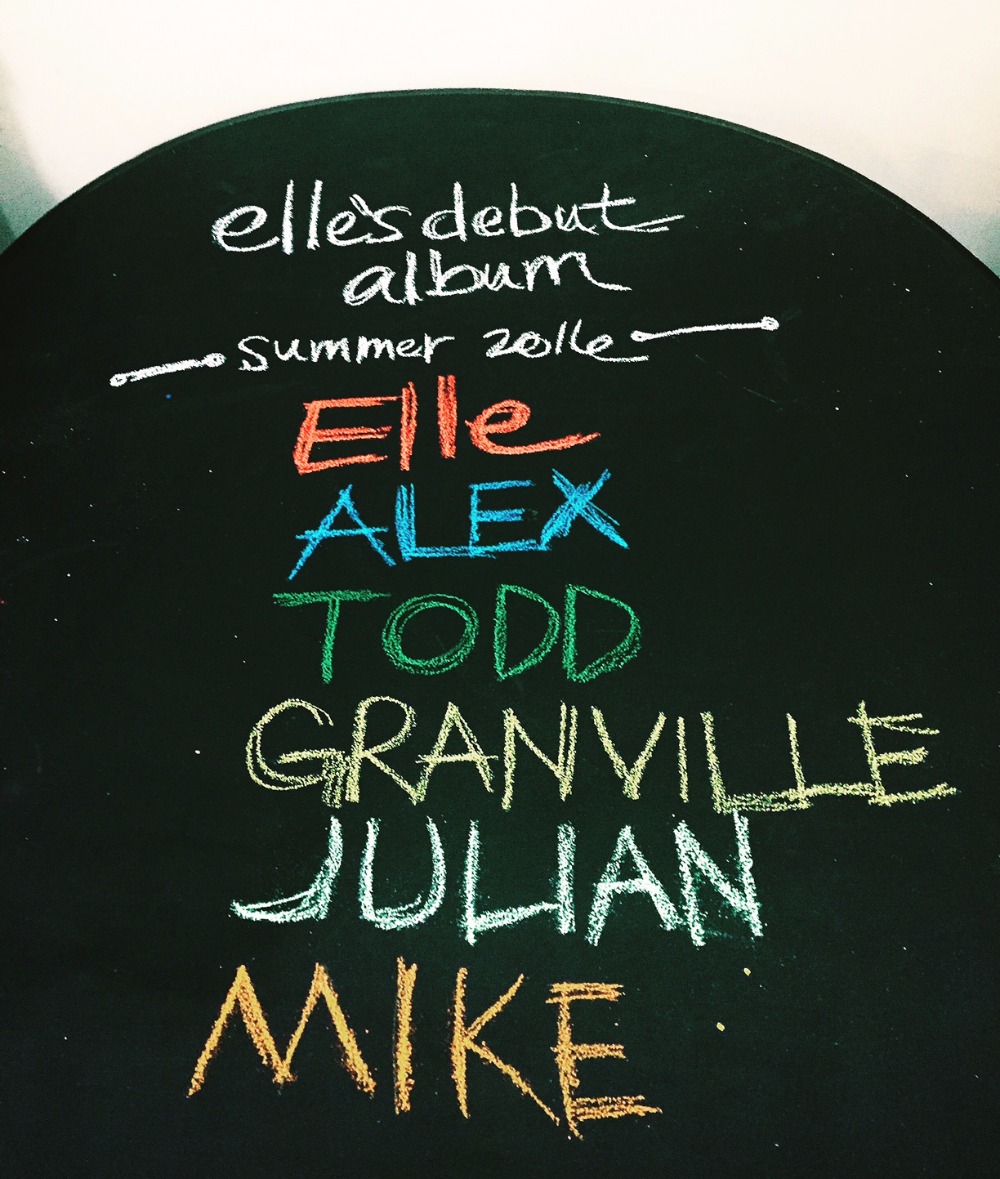 elle's debut
album
summer 2016
Elle
ALEX
TODD
GRANVILLE
JULIAN
MIKE